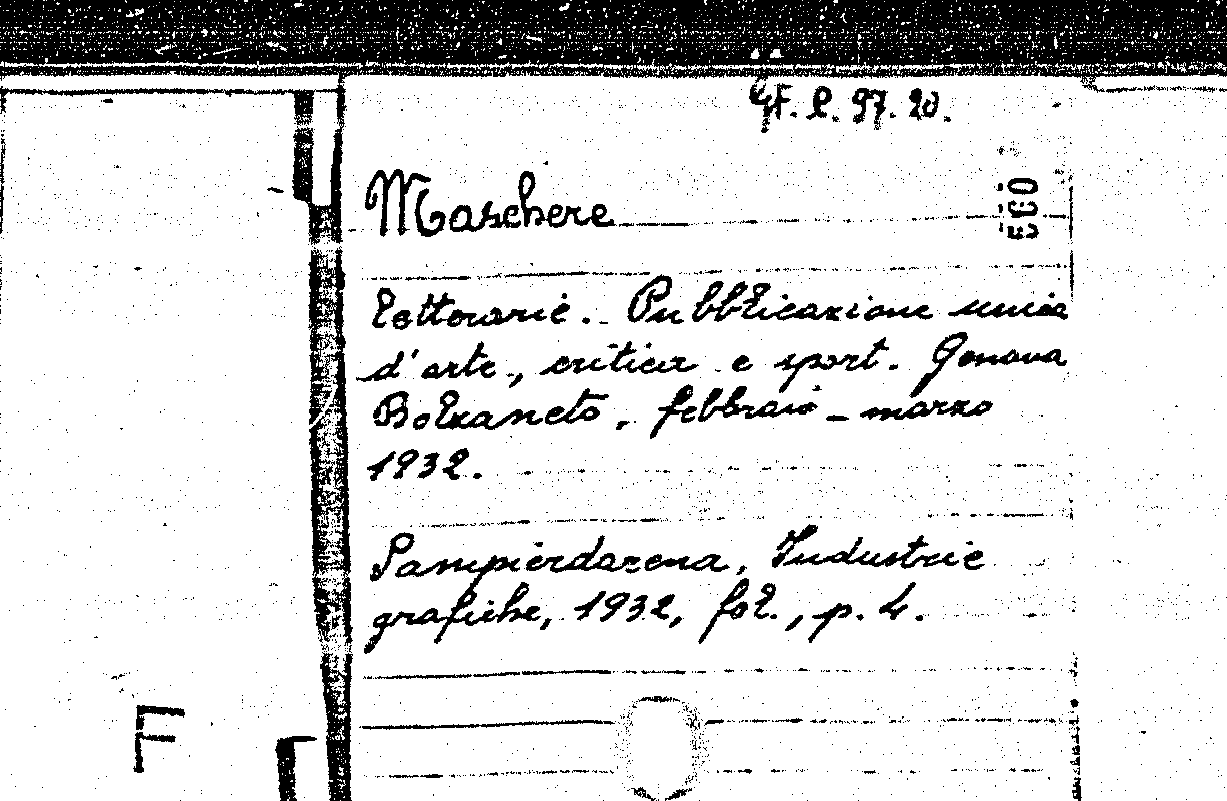 Gf. l. 97. 20.
Maschere
ECO
letterarie. Pubblicazione unica
d'arte, critica e sport. Genova
Bolzaneto, febbraio - marzo
1932.
Sampierdarena, Industrie
grafiche, 1932, fol., p. 4.
F